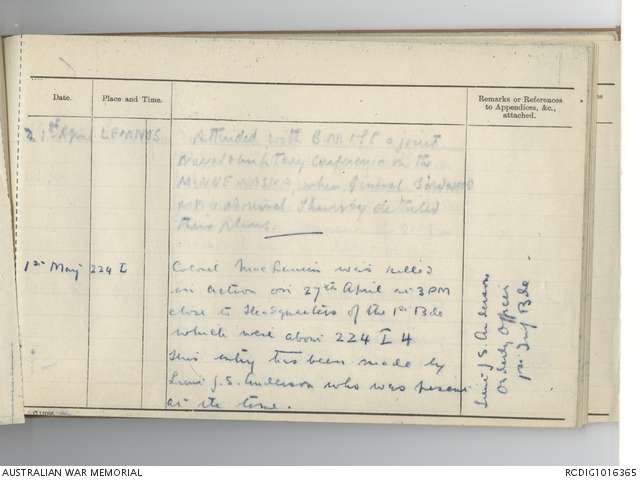 Date.
Place and Time.
Remarks or References
to Appendices, &c.,
attached.
21st April LEMNOS
Attended with B.M. 1st a joint
Naval & military conference on the
MINNEWASKA when General Birdwood
and Admiral Thursby detailed
their plans.
1st May 224 I
Colonel MacLaurin was killed
in action on 27th April at 3PM
close to Headquarters of the 1st Bde
which were about 224 I 4
This entry has been made by
Lieut J.S. Anderson who was present
at the time.
Lieut J.S. Anderson
Orderly Officer
1st Inf Bde
AUSTRALIAN WAR MEMORIAL
RCDIG1016365